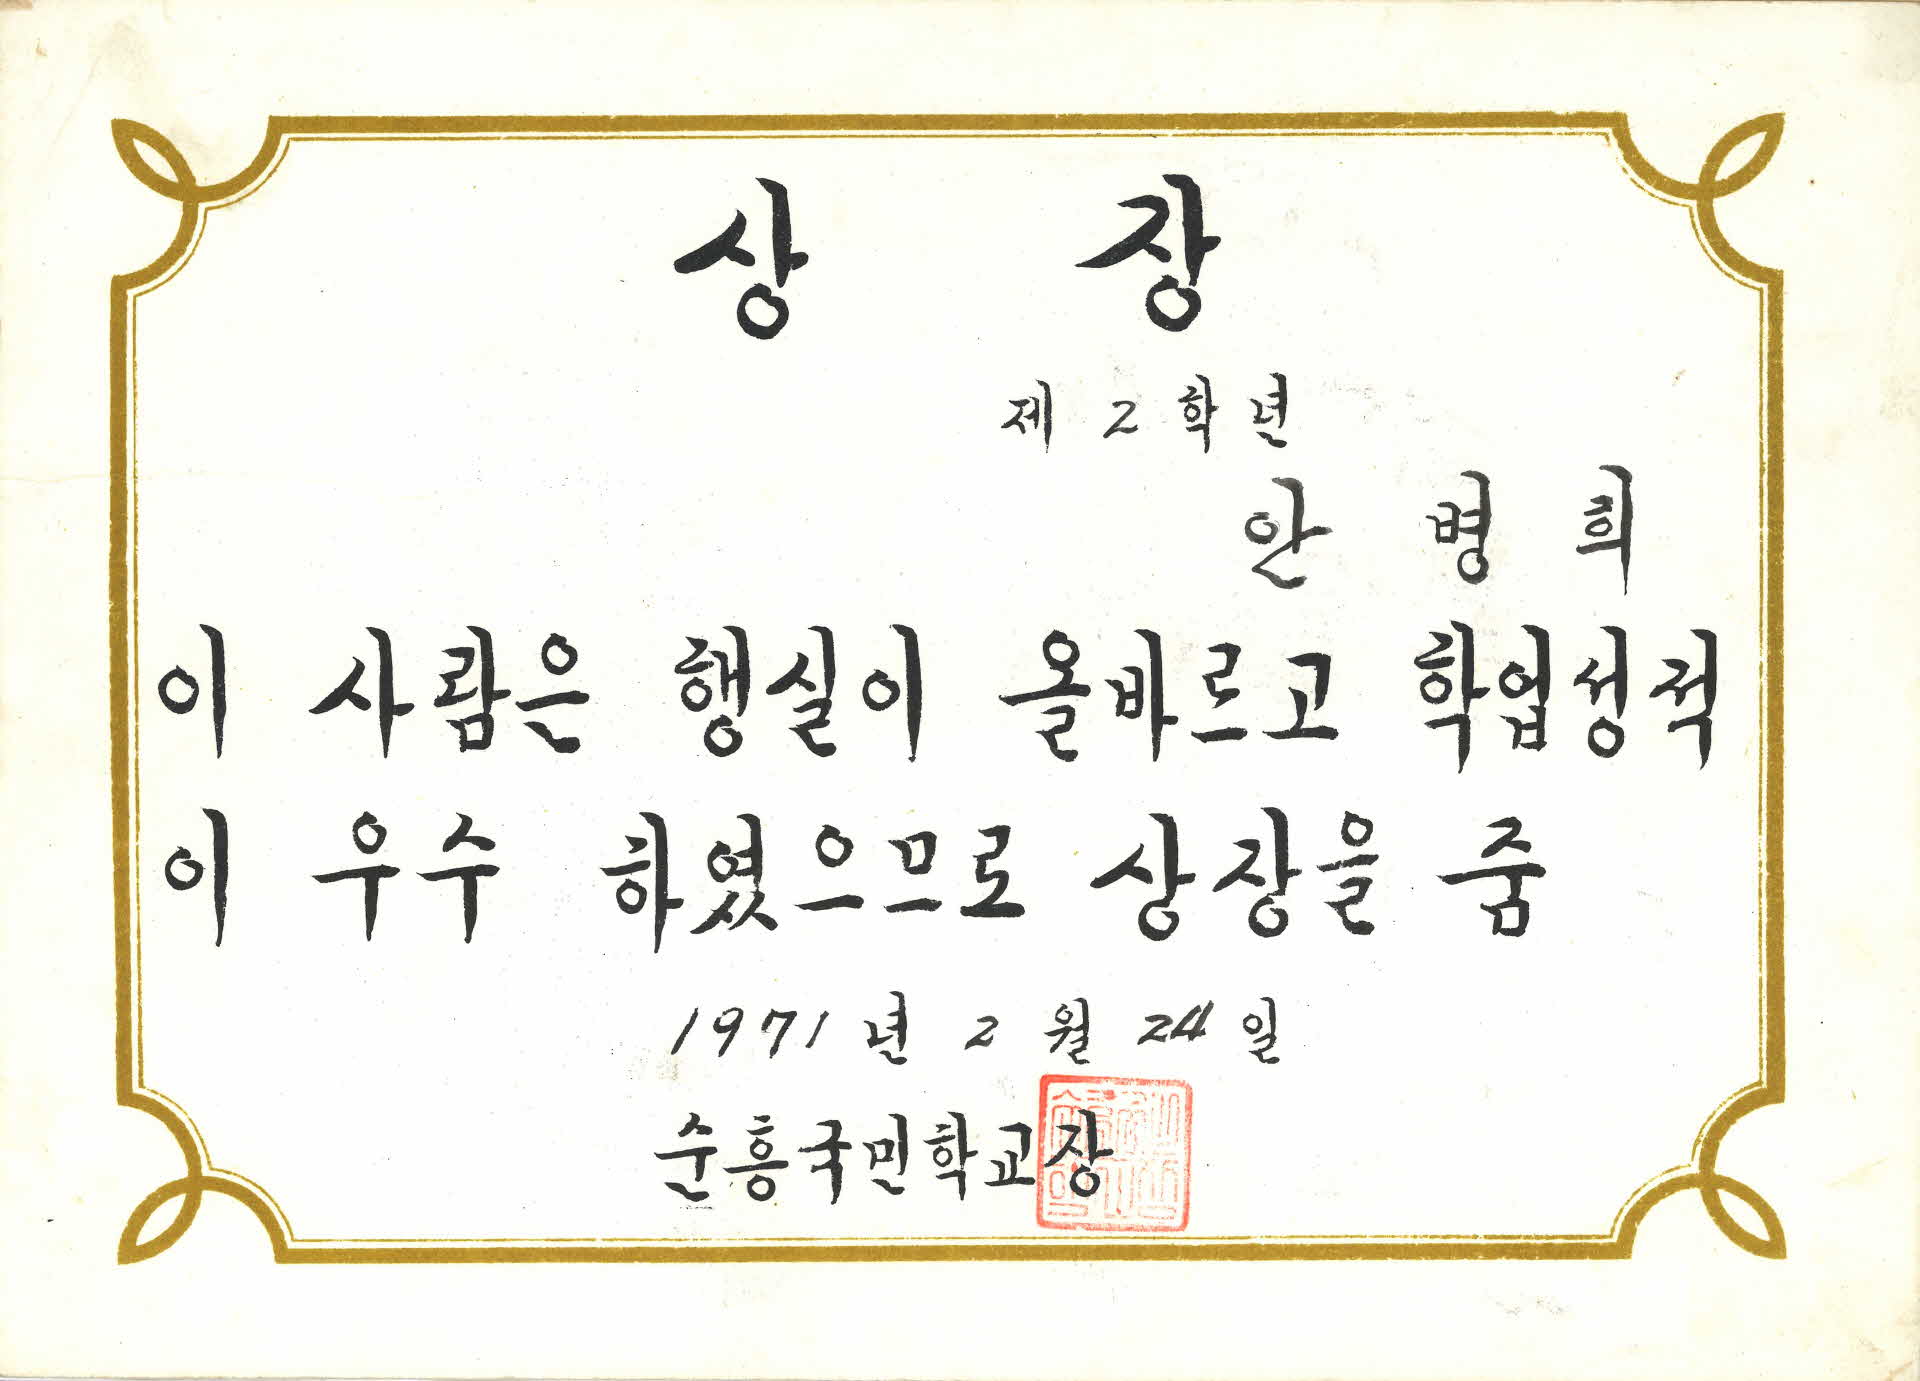 상 장
제 2 학년
안 병 희
이 사람은 행실이 올바르고 학업성적
이 우수 하였으므로 상장을 줌
1971 년 2 월 24 일
순흥국민학교장